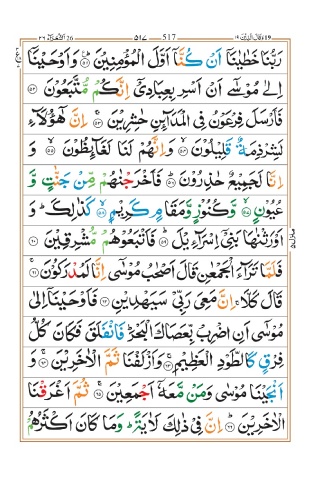 وقال الذین ١٩ ٥١٧ 517 الشعرآء 26 ٢٦
رَبُّنَا خَطٰیٰنَاۤ اَنْ كُنَّاۤ اَوَّلَ الْمُؤْمِنِیْنَ ؕ۠ ٥١ وَاَوْحَیْنَاۤ
اِلٰی مُوْسٰۤی اَنْ اَسْرِ بِعِبَادِیْۤ اِنَّكُمْ مُّتَّبَعُوْنَ ٥٢
فَاَرْسَلَ فِرْعَوْنُ فِی الْمَدَآئِنِ حٰشِرِیْنَ ۚ ٥٣ اِنَّ هٰۤؤُلَآءِ
لَشِرْذِمَةٌ قَلِیْلُوْنَ ۙ ٥٤ وَاِنَّهُمْ لَنَا لَغَآئِظُوْنَ ۙ ٥٥ وَ
اِنَّا لَجَمِیْعٌ حٰذِرُوْنَ ؕ ٥٦ فَاَخْرَجْنٰهُمْ مِّنْ جَنّٰتٍ وَّ
عُیُوْنٍ ۙ ٥٧ وَّكُنُوْزٍ وَّمَقَامٍ كَرِیْمٍ ۙ ٥٨ كَذٰلِكَ ؕ وَ
اَوْرَثْنٰهَا بَنِیْۤ اِسْرَآءِیْلَ ؕ ٥٩ فَاَتْبَعُوْهُمْ مُّشْرِقِیْنَ ٦٠
فَلَمَّا تَرَآءَ الْجَمْعٰنِ قَالَ اَصْحٰبُ مُوْسٰۤی اِنَّا لَمُدْرَكُوْنَ ۚ ٦١
قَالَ كَلَّا ۚ اِنَّ مَعِیَ رَبِّیْ سَیَهْدِیْنِ ٦٢ فَاَوْحَیْنَاۤ اِلٰی
مُوْسٰۤی اَنِ اضْرِبْ بِّعَصَاكَ الْبَحْرَ ؕ فَانْفَلَقَ فَكَانَ كُلُّ
فِرْقٍ كَالطَّوْدِ الْعَظِیْمِ ۚ ٦٣ وَاَزْلَفْنَا ثَمَّ الْاٰخَرِیْنَ ۚ ٦٤ وَ
اَنْجَیْنَا مُوْسٰی وَمَنْ مَّعَهٗۤ اَجْمَعِیْنَ ۚ ٦٥ ثُمَّ اَغْرَقْنَا
الْاٰخَرِیْنَ ؕ ٦٦ اِنَّ فِیْ ذٰلِكَ لَاٰیَةً ؕ وَمَا كَانَ اَكْثَرُهُمْ